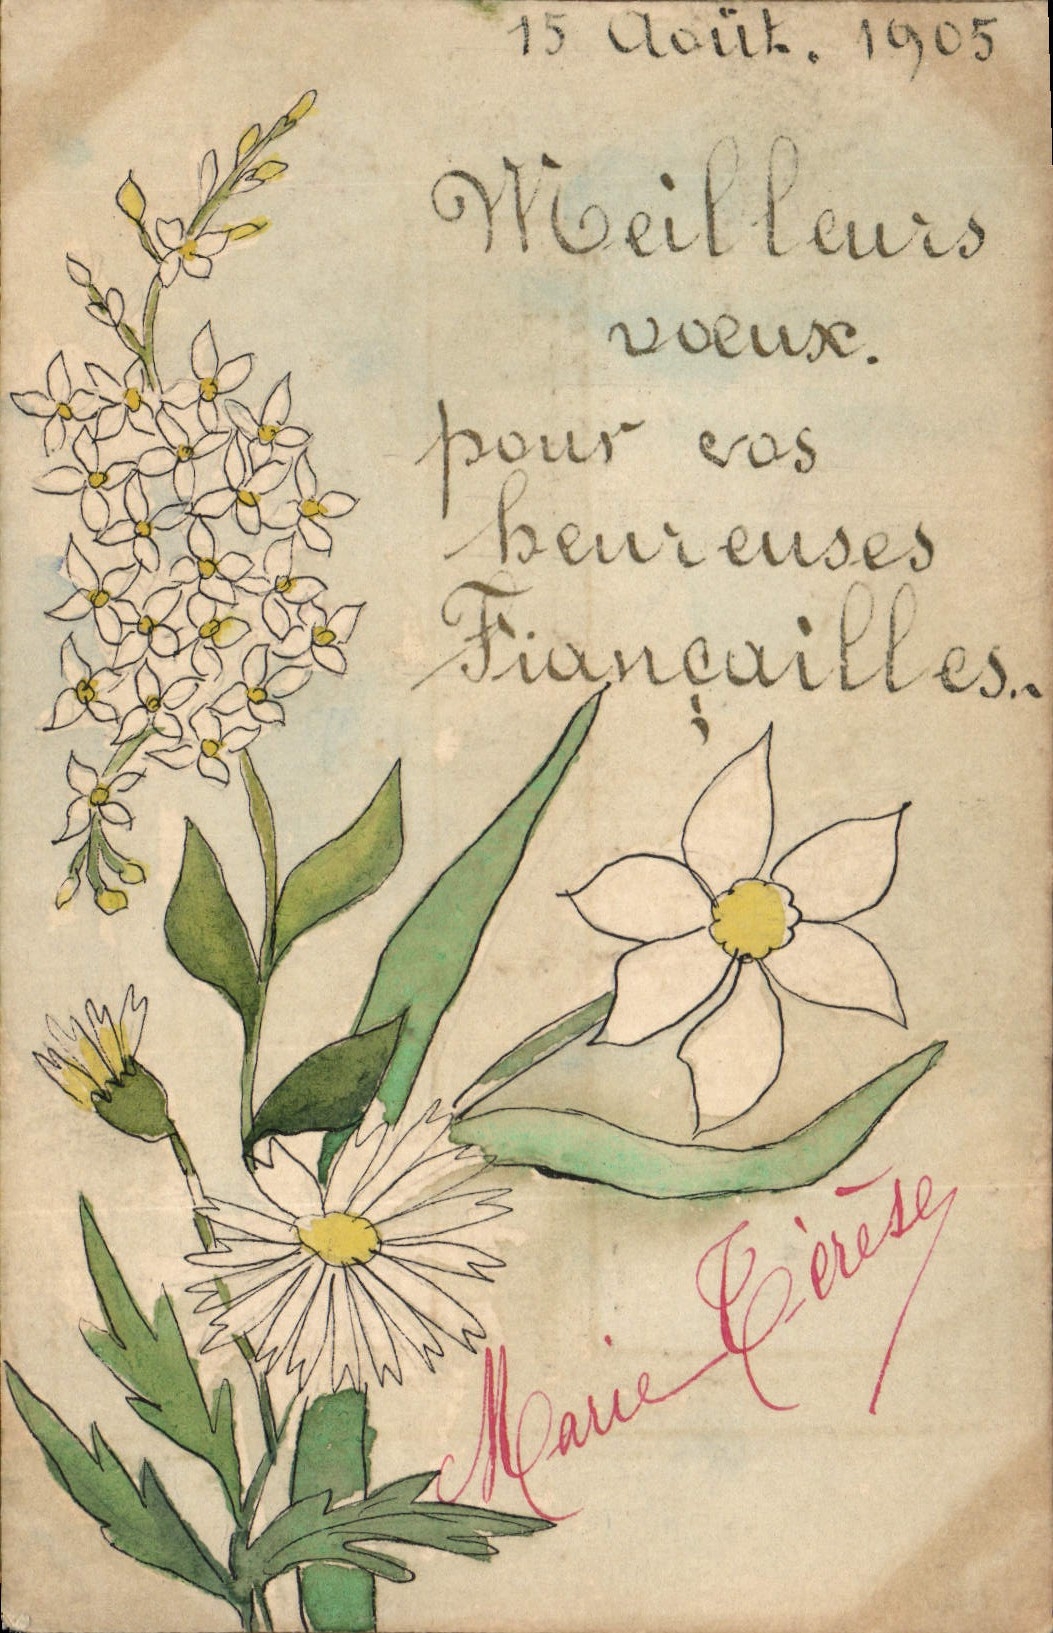 15 Août. 1905
Meilleurs
voeux.
pour vos
heureuses
Fiançailles..
Marie Térèse